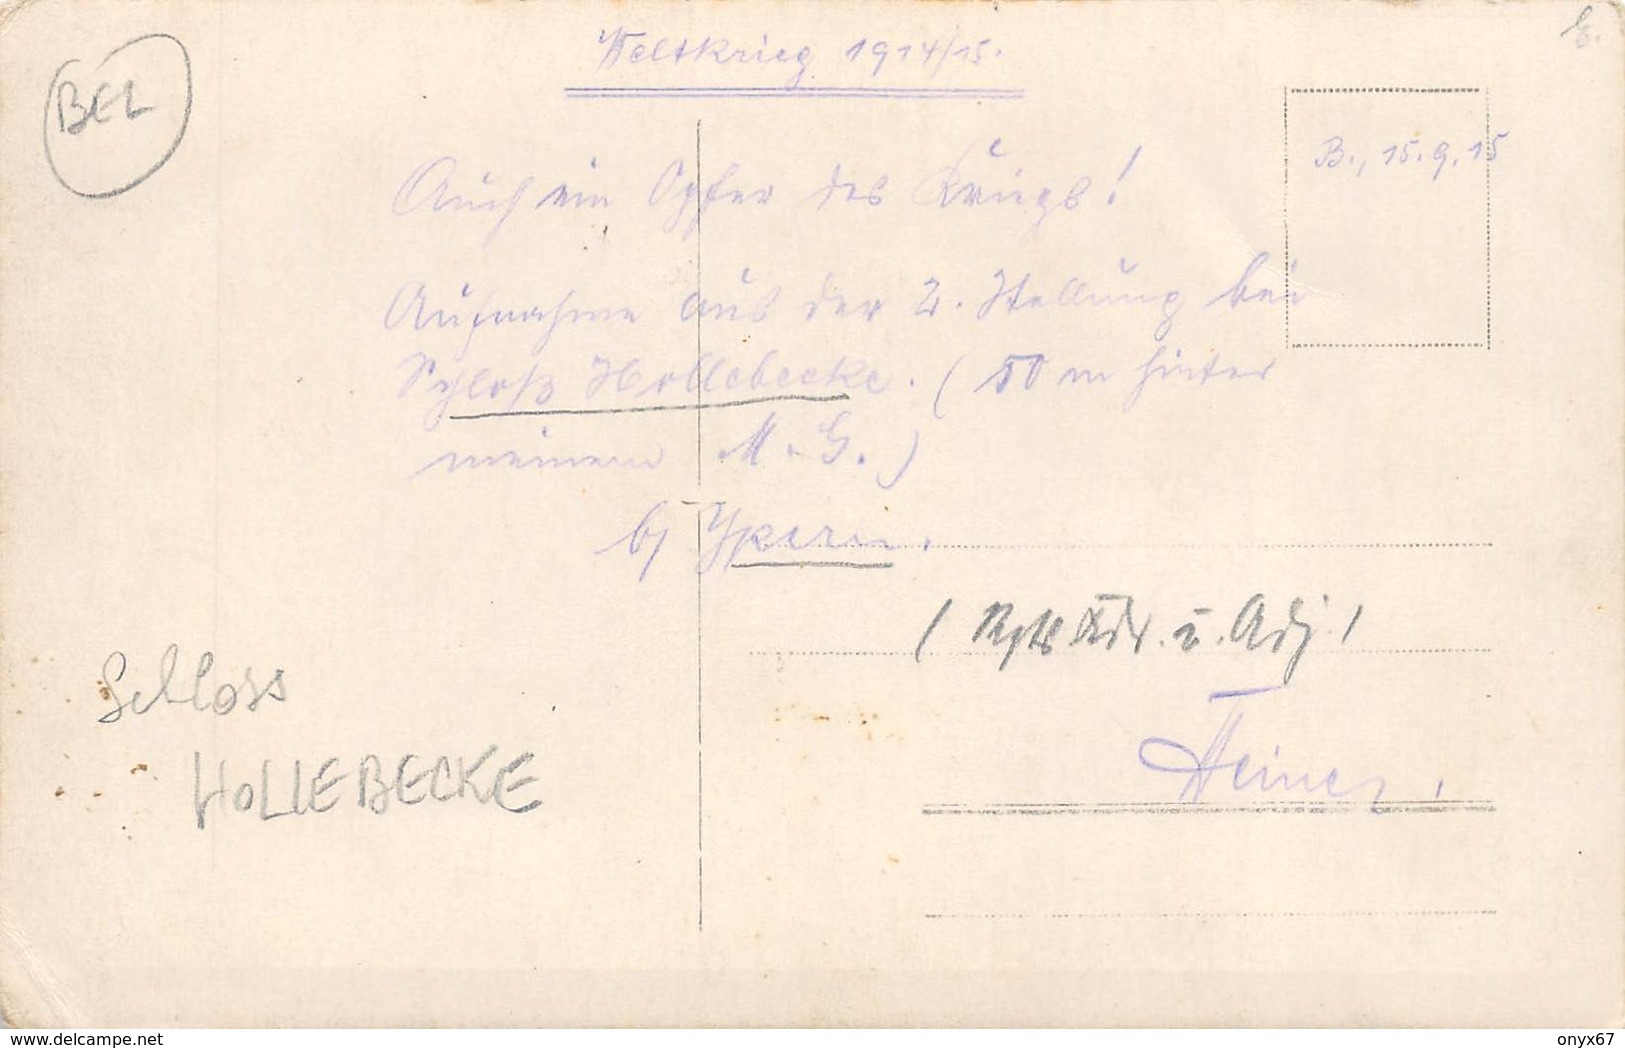 Weltkrieg 1914/15.
BEL
B., 15.9.15
Auch ein Opfer des Krieges!
Aufnahme aus der 2. Stellung bei
Schloß Hollebecke. (50 m hinter
meinem M.G.)
b/ Ypern.
Kdr. u. Adj.
Heiner.
Schloss
HOLLEBECKE
delcampe.net
onyx67